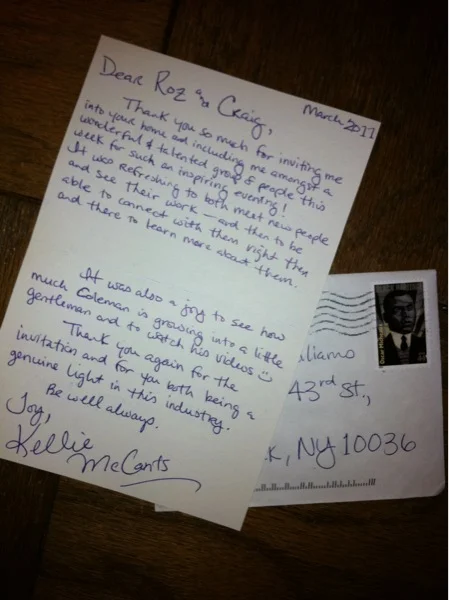 March 2011
Dear Roz and Craig,
Thank you so much for inviting me
into your home and including me amongst a
wonderful & talented group of people this
week for such an inspiring evening!
It was refreshing to both meet new people
and see their work — and then to be
able to connect with them right then
and there to learn more about them.
It was also a joy to see how
much Coleman is growing into a little
gentleman and to watch his videos
Thank you again for the
invitation and for you both being a
genuine light in this industry.
Be well always.
Joy,
Kellie
McCants
lliams
43rd St.,
k, NY 10036